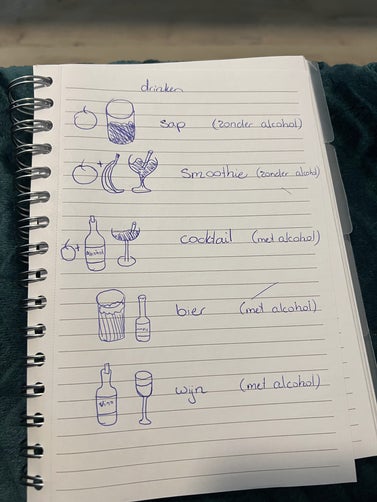 drinken
sap (zonder alcohol)
Smoothie (zonder alcohol)
Alcohol
cocktail (met alcohol)
bier (met alcohol)
wijn (met alcohol)